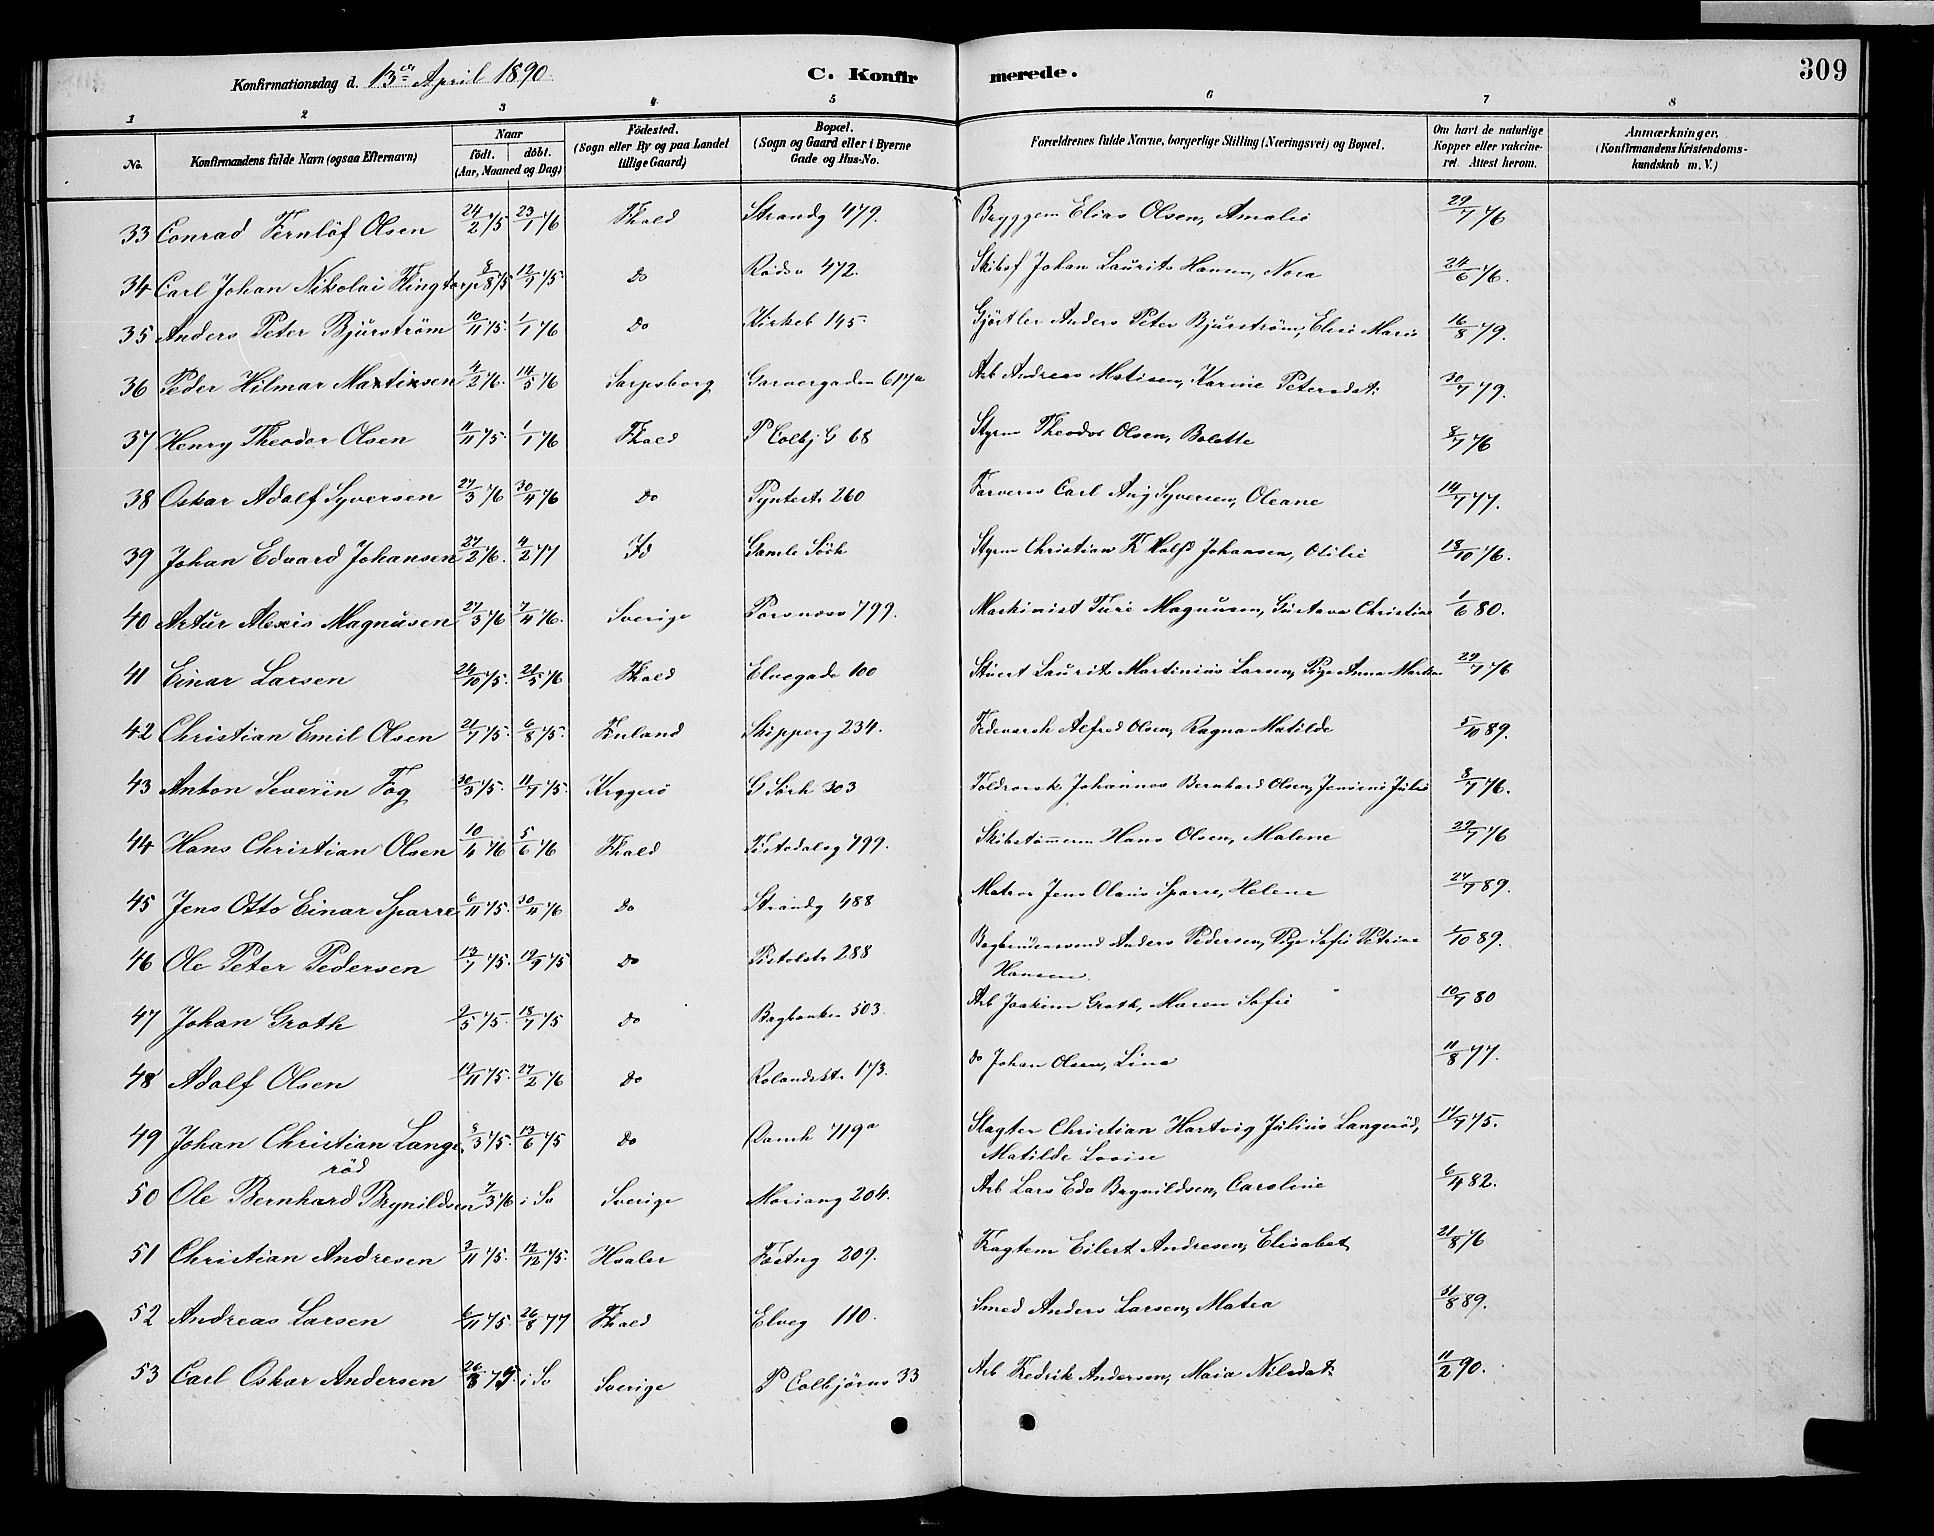 Konfirmationsdag d. 13de April 1890. C. Konfirmerede. 309
1 2 3 4 5 6 7 8
No. Konfirmandens fulde Navn (ogsaa Efternavn) Naar født. døbt. (Aar, Maaned og Dag) Fødested. (Sogn eller By og paa Landet tillige Gaard) Bopæl. (Sogn og Gaard eller i Byerne Gade og Hus-No. Forældrenes fulde Navne, borgerlige Stilling (Næringsvei) og Bopæl. Om havt de naturlige Kopper eller vakcineret. Attest herom. Anmærkninger. (Konfirmandens Kristendomskundskab m. V.)
33 Conrad Fernlöf Olsen 24/2 75 23/1 76 Fhald Strandg 479. Bryggem Elias Olsen, Amalie 29/7 76
34 Carl Johan Nikolai Flingtorp 8/8 75 12/9 75 Do Rödsv 472. Skibsf Johan Laurits Hansen, Nora 24/6 76.
35 Anders Peter Bjurström 10/11 75 1/1 76 Do Kirkeb 145 Gjörtler Anders Peter Bjurström, Elise Marie 16/8 79.
36 Peder Hilmar Martinsen 4/2 76. 14/5 76 Sarpsborg Garvergaden 617a Arb Andreas Matisen, Karine Petersdat. 30/7 79.
37 Henry Theodor Olsen 11/11 75. 1/1 76 Fhald P Colbj G 68 Styrm Theodor Olsen, Bolette 8/7 76
38 Oskar Adolf Syversen 27/3 76 30/4 76 Do Pyntestr 260 Farvers Carl Aug Syversen, Oleane 14/7 77.
39 Johan Edvard Johansen 27/2 76. 4/2 77 Id Gamle Sörh Styrm Christian Johansen, Otilie 18/10 76.
40 Artur Alexis Magnusen 27/3 76 7/4 76. Sverige Porsnæs 799. Maskinist Ture Magnusen, Gustava Christine 1/6 80.
41 Einar Larsen 24/10 75. 21/5 76 Fhald Elvegade 100 Stuert Laurits Martinius Larsen, Pige Anna Martine 29/7 76
42 Christian Emil Olsen 21/7 75. 6/8 75. Enland Skipperg 234. Alfred Olsen, Ragna Matilde 5/10 89.
43 Anton Severin Fog 30/3 75. 11/7 75. Kragerö G Sörh 303 Toldrorsk Johannes Bernhard Olsen, Jensine Julie 8/7 76.
44 Hans Christian Olsen 10/4 76 5/6 76 Fhald Tistedalsg 799. Skibstömmerm Hans Olsen, Malene 29/7 76
45 Jens Otto Einar Sparre 6/11 75. 30/11 76 Do Strandg 488 Matros Jens Olaus Sparre, Helene 27/7 89.
46 Ole Peter Pedersen 13/7 75. 19/9 75 Do Pistolstr 288 Anders Pedersen, Pige Sofie Petrine 1/10 89.
Hansen.
47 Johan Groth 2/5 75. 18/7 75 Do Bagbanken 503. Arb Joakim Groth, Maren Sofie 10/7 80
48 Adolf Olsen 19/11 75. 27/2 76 Do Rolandstr 173. do Johan Olsen, Lina 11/8 77.
49 Johan Christian Lange 8/3 75. 13/6 75 Do Damh 719a Slagter Christian Hartvig Julius Langeröd, 17/9 75.
röd Matilde Lovise
50 Ole Bernhard Brynildsen 7/3 76 i So Sverige Mariang 204. Arb Lars Edv Brynildsen, Caroline 6/4 82.
51 Christian Andresen 3/11 75. 12/12 75. Hvaler Fæstng 209. Fragtem Eilert Andresen, Elisabet 21/8 76
52 Andreas Larsen 6/11 75 26/8 77 Fhald Elveg 110. Smed Anders Larsen, Matea 31/8 89.
53 Carl Oskar Andersen 26/8 75. i So Sverige P Colbjörns 33 Arb Fredrik Andersen, Maia Nilsdat. 11/2 90.